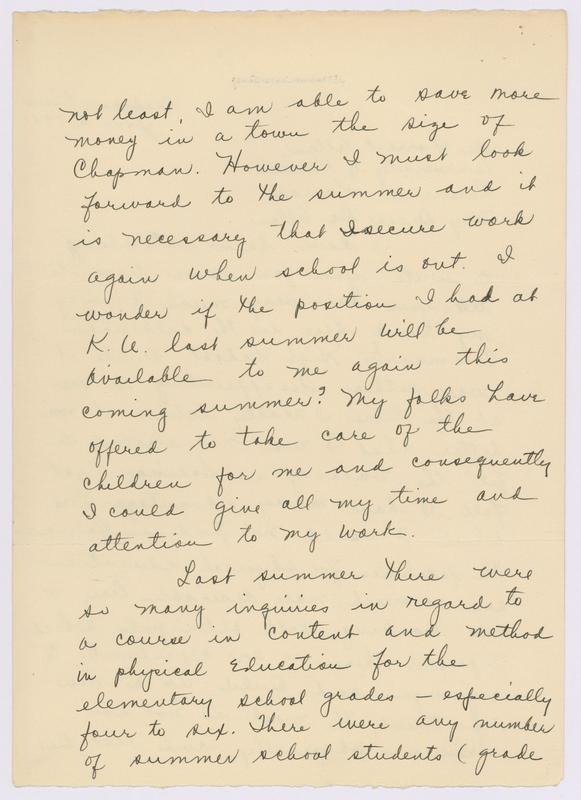 not least, I am able to save more
money in a town the size of
Chapman. However I must look
forward to the summer and it
is necessary that I secure work
again when school is out. I
wonder if the position I had at
K. U. last summer will be
available to me again this
coming summer? My folks have
offered to take care of the
children for me and consequently
I could give all my time and
attention to my work.
Last summer there were
so many inquiries in regard to
a course in content and method
in physical Education for the
elementary school grades – especially
four to six. There were any number
of summer school students (grade